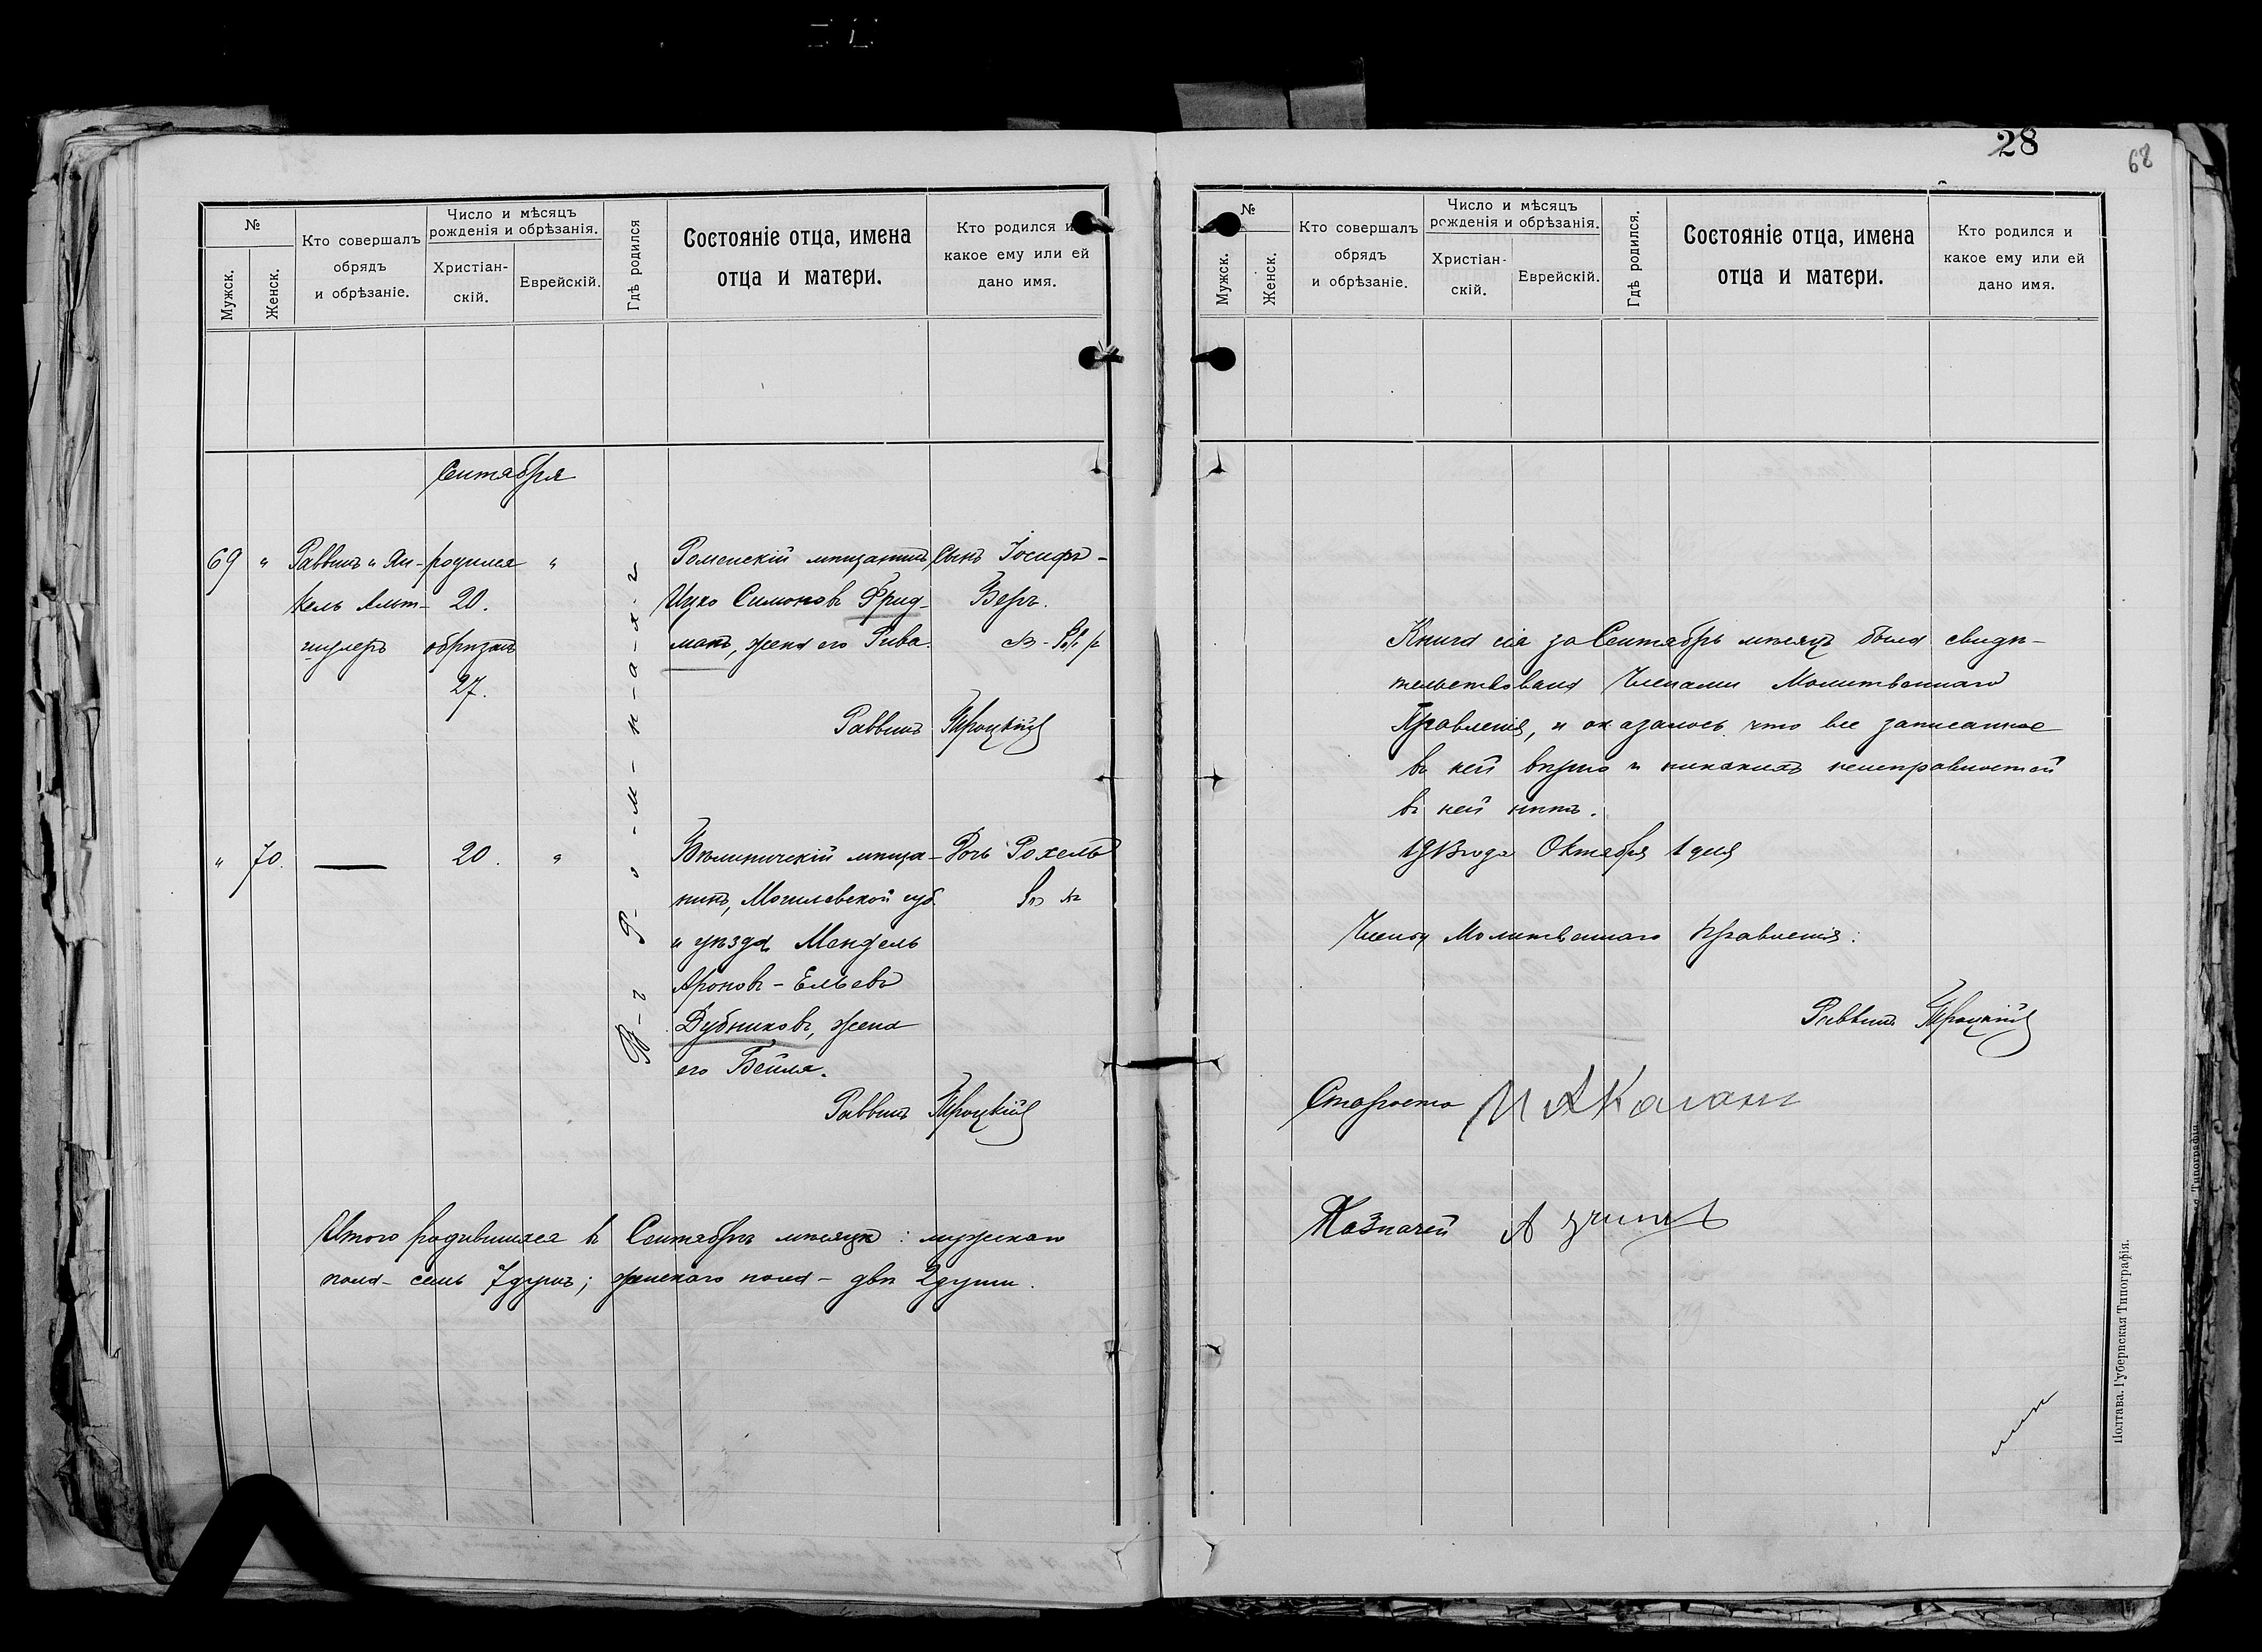 №
Мужск.
Женск.
Кто совершалъ
обрядъ
и обрѣзаніе.
Число и мѣсяцъ
рожденія и обрѣзанія.
Христіан-
скій.
Еврейскій.
Гдѣ родился
Состояніе отца, имена
отца и матери.
Кто родился и
какое ему или ей
дано имя.
Сентября
69 " Раввинъ и Ян- родился " Роменскій мѣщанинъ Сынъ Іосифъ-
кель Альт- 20. Ицко Симоновъ Фрид- Беръ.
шулеръ обрѣзанъ манъ, жена его Рива.
27.
Раввинъ Троцкій
" 70. — 20. " мѣща- Дочь Рохель
нинъ, Могилевской губ.
и уѣзда Мендель
Ароновъ-Ельевъ
Дубниковъ, жена
его Бейля.
Раввинъ Троцкій
В-ъ Р-о-м-н-а-х-ъ
Итого родившихся въ Сентябрѣ мѣсяцѣ: мужского
пола- семь 7 душъ; женского пола- двѣ 2 души.
28
68
№
Мужск.
Женск.
Кто совершалъ
обрядъ
и обрѣзаніе.
Число и мѣсяцъ
рожденія и обрѣзанія.
Христіан-
скій.
Еврейскій.
Гдѣ родился.
Состояніе отца, имена
отца и матери.
Кто родился и
какое ему или ей
дано имя.
Книга сія за Сентябрь мѣсяцъ была свидѣ-
тельствована Членами Молитвеннаго
Правленія, и оказалось что все записанное
въ ней вѣрно и никакихъ неисправностей
въ ней нѣтъ.
1913 года Октября 1 дня
Члены Молитвеннаго Правленія:
Раввинъ Троцкій
Староста И А Каганъ
Казначей А
Полтава. Губернская Типографія.